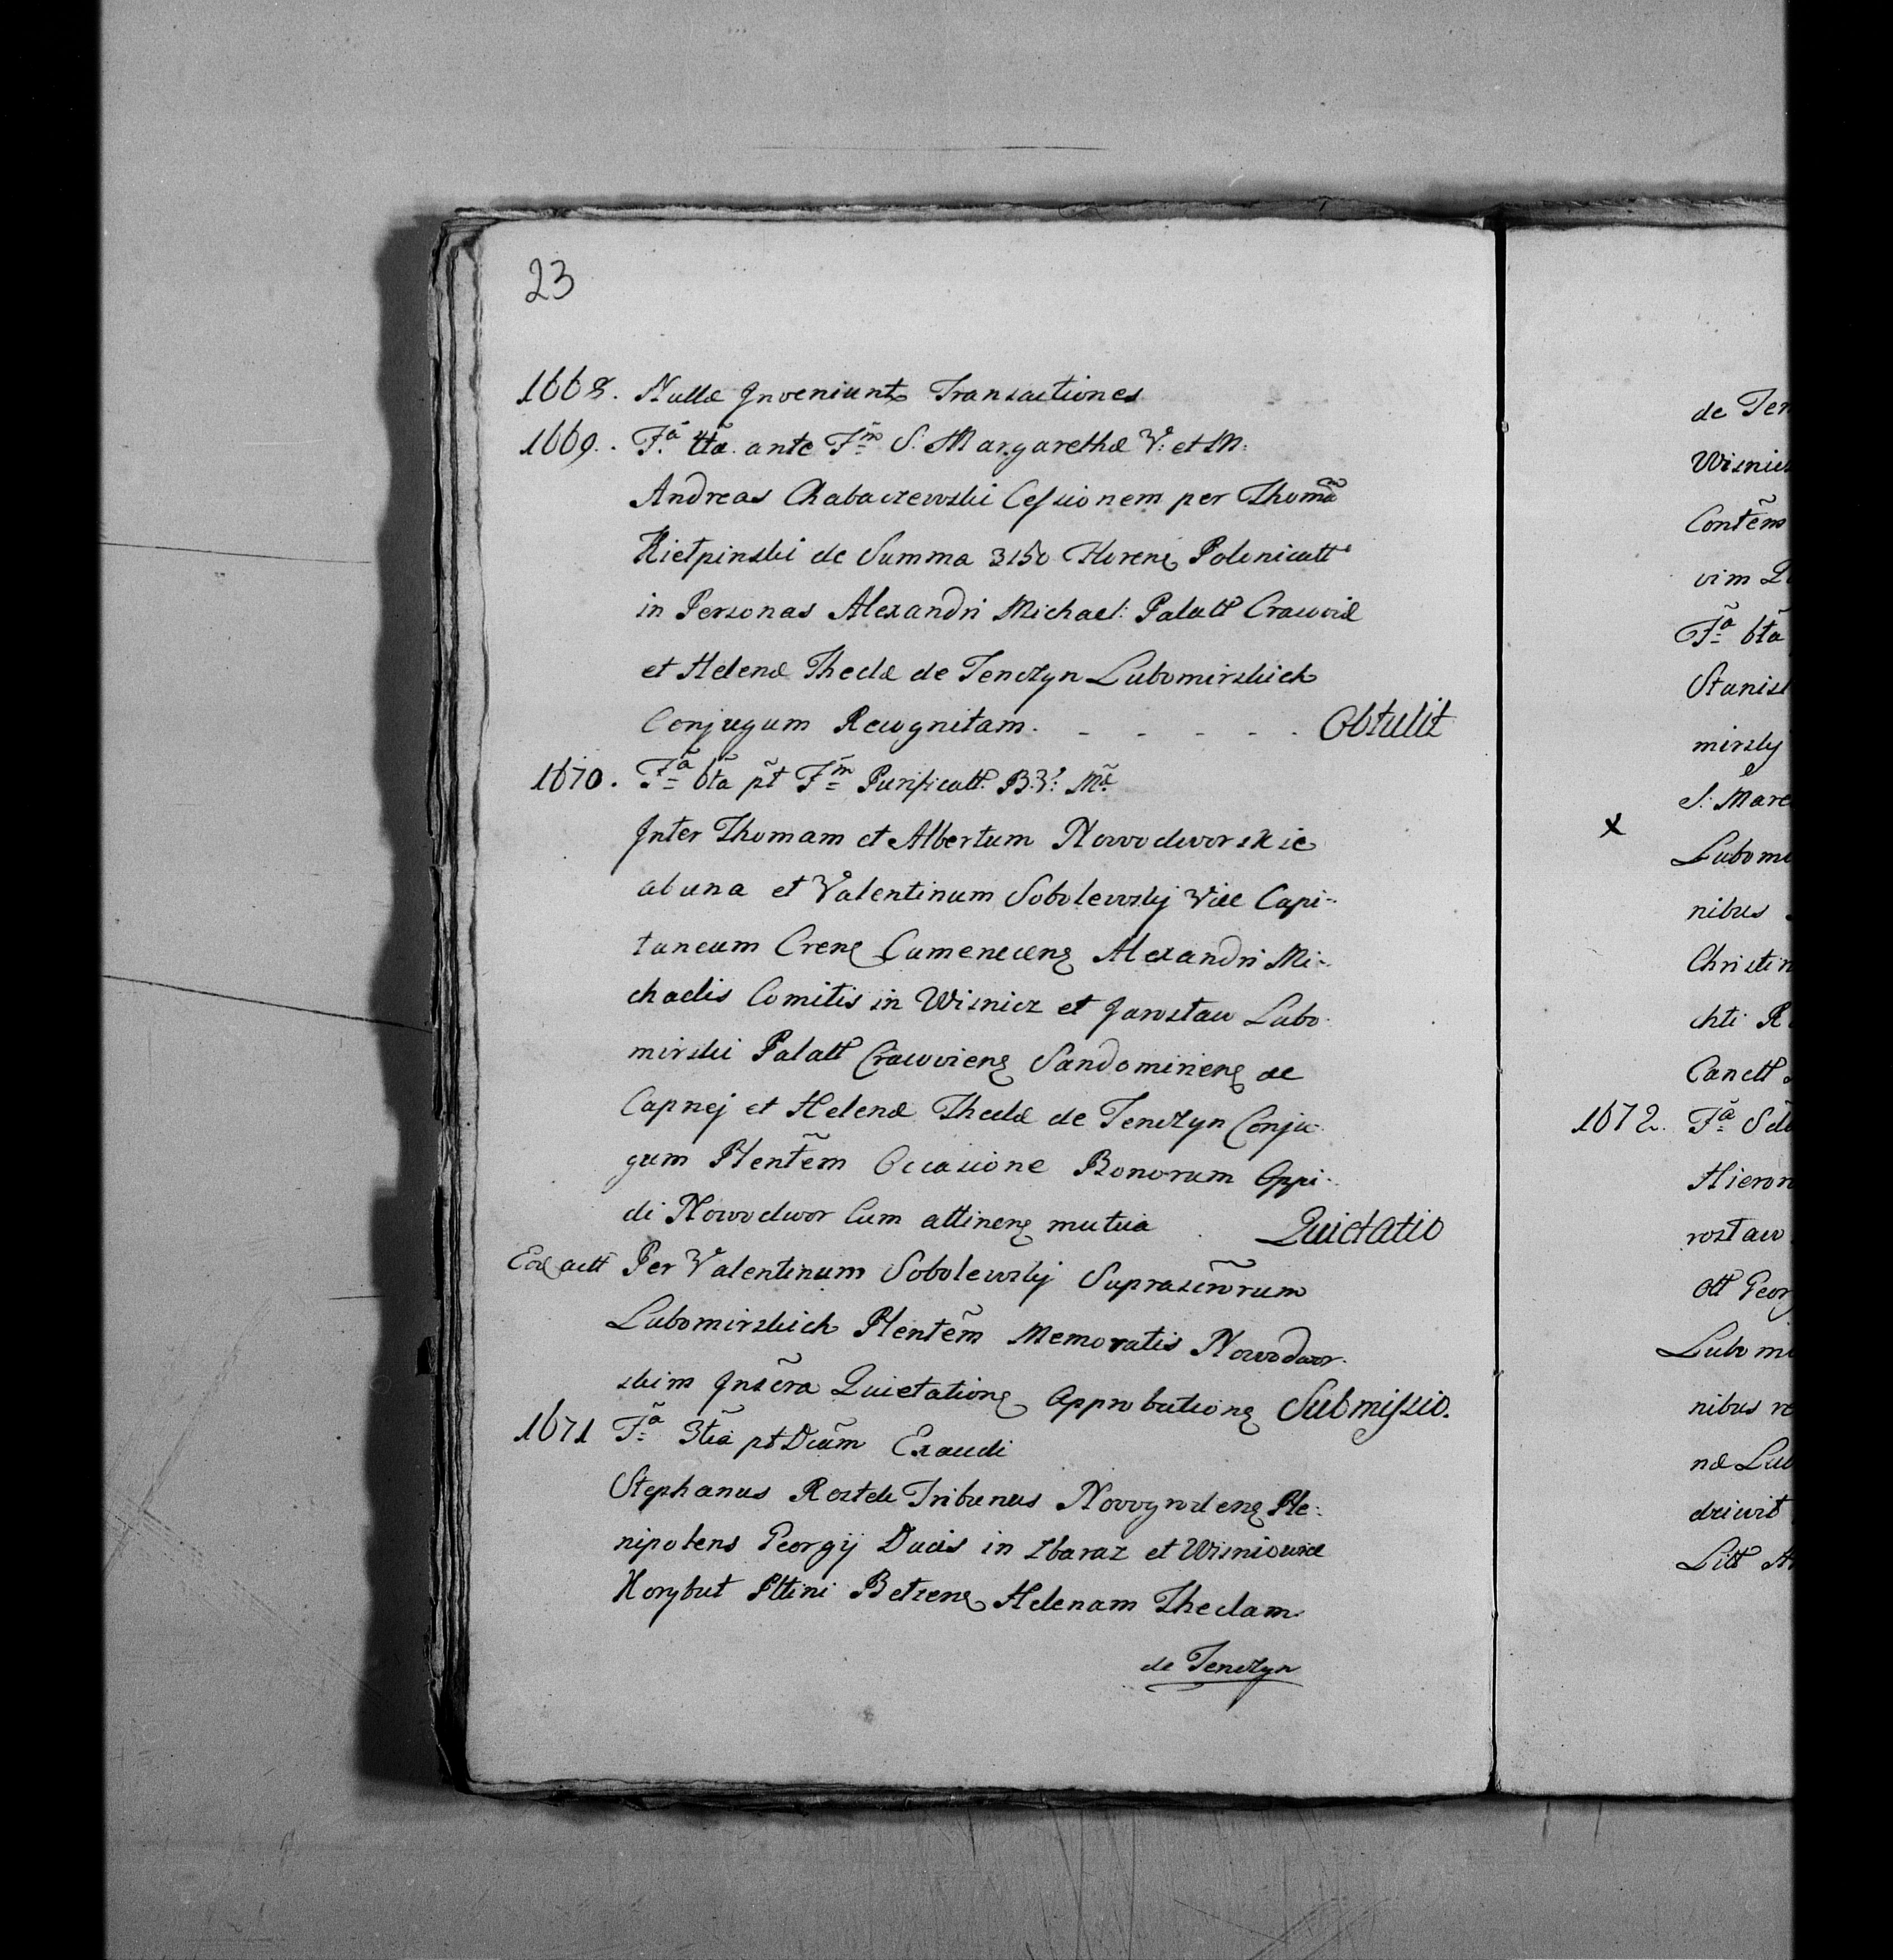 23
1668. Nullæ Inveniunt Transactiones
1669. Fã 4tã ante Fm̃ S: Margarethæ V: et M:
Andreas Chabaczewski Cessionem per Thomã
Kiełpinski de Summa 3150 Floren Polonicall
in Personas Alexandri Michael: Palatt Cracoviæ
et Helenæ Theclæ de Tenczyn Lubomirskich
Conjugum Recognitam. - - - - - Obtulit
1670. Fã 6tã pt̃ Fm̃ Purificatt: B: V: Mæ̃
Inter Thomam et Albertum Nowodworskie
ab una et Valentinum Sobolewskÿ Vice Capi-
taneum Cren Camenecens Alexandri Mi-
chaelis Comitis in Wisnicz et Jarosław Lubo-
mirski Palatt Cracoviens Sandomiriens ac
Capnej et Helenæ Theclæ de Tenczyn Conju-
gum Plentem̃ Occasione Bonorum Oppi-
di Nowodwor Cum attinen mutua . Quietatio
Eod actt Per Valentinum Sobolewskÿ Suprascrm̃orum
Lubomirskich Plentem̃ Memoratis Nowodwor-
skim Inscr̃a Quietation Approbation Submissio.
1671 Fã 3tiã pt Dcam̃ Exaudi
Stephanus Rostek Tribunus Novogrodens Ple-
nipotens Georgÿ Ducis in Zbaraz et Wisniowice
Korybut Pttini Bełzens Helenam Theclam
de Tenczyn
de Ten
Wisnic
Contem̃
vim
Fã 6tã
Stanisl
mirsky
S: Mare
x
Lubomi
nibus
Christin
chti R
Canctt
1672. Fã Sc
Hieron
rosław
Ott Geor
Lubomi
nibus re
næ Lub
dzivit
Litt